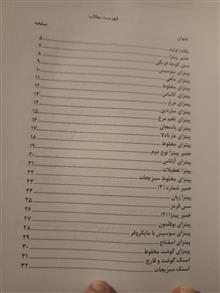 فهرست مطالب
عنوان صفحه
نکات اولیه ۵
خمیر پیتزا ۷
سس گوجه فرنگی ۸
پیتزای سوسیس ۹
پیتزای ماهی ۱۰
پیتزای کالباس ۱۱
پیتزای مخلوط ۱۲
پیتزای مرغ ۱۳
پیتزای ساردین ۱۴
پیتزای تخم مرغ ۱۵
پیتزای بادمجان ۱۶
پیتزای مارتادلا ۱۷
پیتزای مخلوط ۱۸
خمیر پیتزا نوع دوم ۱۹
پیتزای آناناس ۲۰
پیتزا تعطیلات ۲۱
پیتزای مخلوط سبزیجات ۲۲
خمیر شماره (۳) ۲۳
پیتزا ژیان ۲۴
سس قرمز ۲۵
خمیر پیتزا (۴) ۲۶
پیتزای بوقلمون ۲۷
پیتزای سوسیس با مایکروفر ۲۸
پیتزای اسفناج ۲۹
پیتزای گوشت مخلوط ۳۰
اسنک گوشت و قارچ ۳۱
اسنک سبزیجات ۳۲